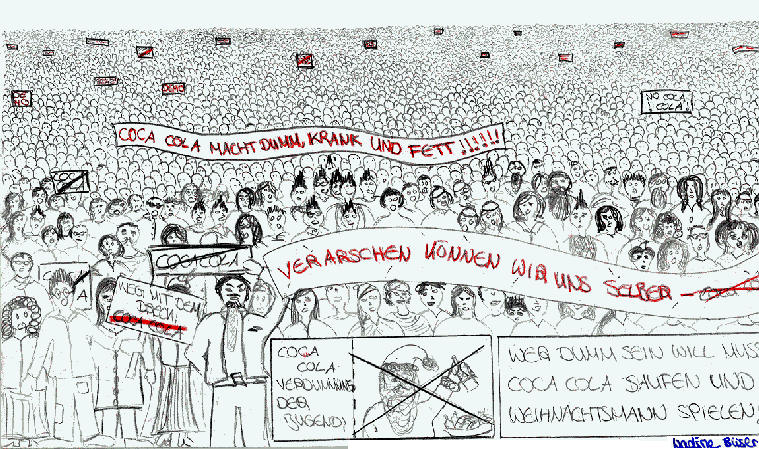 DE
MO
DEMO
NO COLA
COLA
COCA COLA MACHT DUMM, KRANK UND FETT!!!!!!
COCA COLA
VERARSCHEN KÖNNEN WIR UNS SELBER
WEG MIT DEM
DRECK!
COCA COLA
A
COCA
COLA
VERDUMMUNG
DER
JUGEND!
WER DUMM SEIN WILL MUSS
COCA COLA SAUFEN UND
WEIHNACHTSMANN SPIELEN!
Nadine